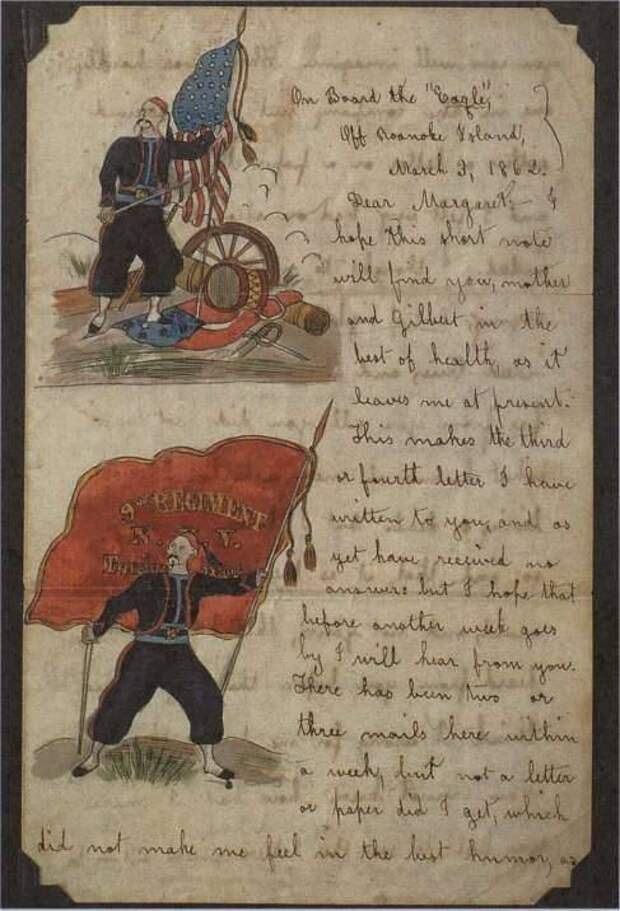 On Board the "Eagle",
Off Roanoke Island,
March 3, 1862.
Dear Margaret:- I
hope this short note
will find you, mother
and Gilbert, in the
best of health, as it
leaves me at present.
This makes the third
or fourth letter I have
written to you, and as
yet have received no
answers: but I hope that
before another week goes
by I will hear from you.
There has been two or
three mails here within
a week, but not a letter
or paper did I get, which
did not make me feel in the best humor, as
9th REGIMENT
N. Y. V.